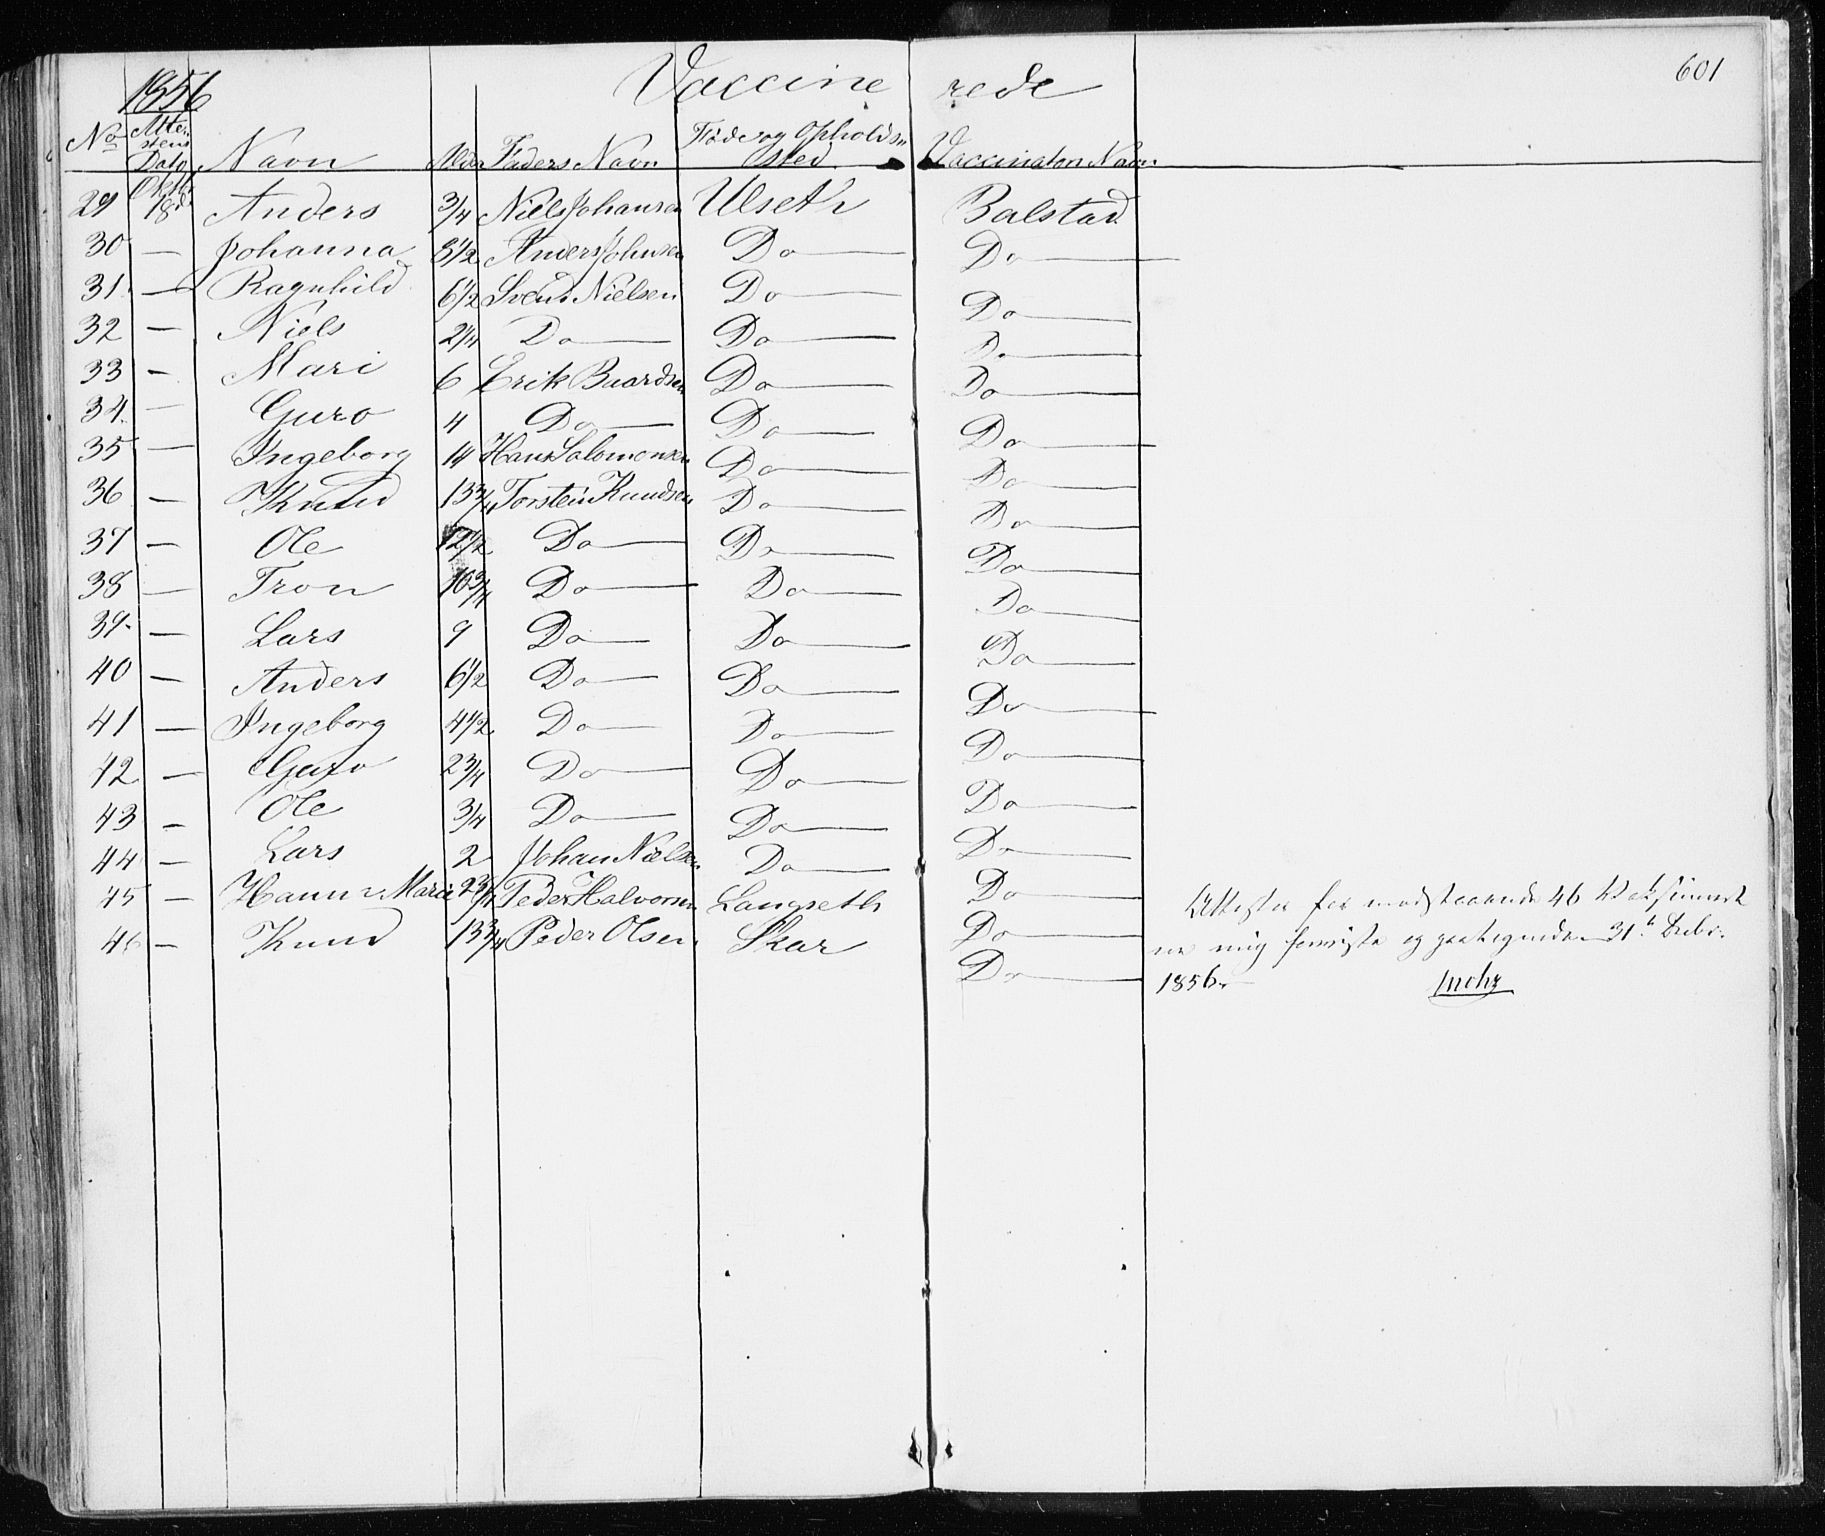 601
1856 Vaccine rede
No Attestens Dato Navn Alder Faders Navn Føde og Opholdssted Vaccinatøren Navn
29 Oktb 18d Anders 3/4 Niels Johansen Ulseth Balstad
30 — Johanna 8 1/2 Anders Johnsen Do — Do —
31 — Ragnhild 6 1/2 Svend Nielsen Do — Do —
32 — Niels 2 1/4 Do — Do — Do —
33 — Mari 6 Erik Baardsen Do — Do —
34. — Guro 4 Do — Do — Do —
35 — Ingeborg 14 Hans Salomonsen Do — Do —
36 — Knud 13 3/4 Torstein Knudsen Do — Do —
37 — Ole 12 1/2 Do — Do — Do —
38 — Tron 10 3/4 Do — Do — Do —
39. — Lars 9 Do — Do — Do —
40 — Anders 6 1/2 Do — Do — Do —
41 — Ingeborg 4 1/2 Do — Do — Do —
42 — Guro 2 3/4 Do — Do — Do —
43 — Ole 3/4 Do — Do — Do —
44 — Lars 2 Johan Nielsen Do — Do —
45 — Hanna Marie 2 3/4 Peder Halvorsen Langseth Do —
46 — Knud 13 3/4 Peder Olsen Skar Do —
Attester for modstaaende 46
er mig foreviste og 31te Decbr.
1856.